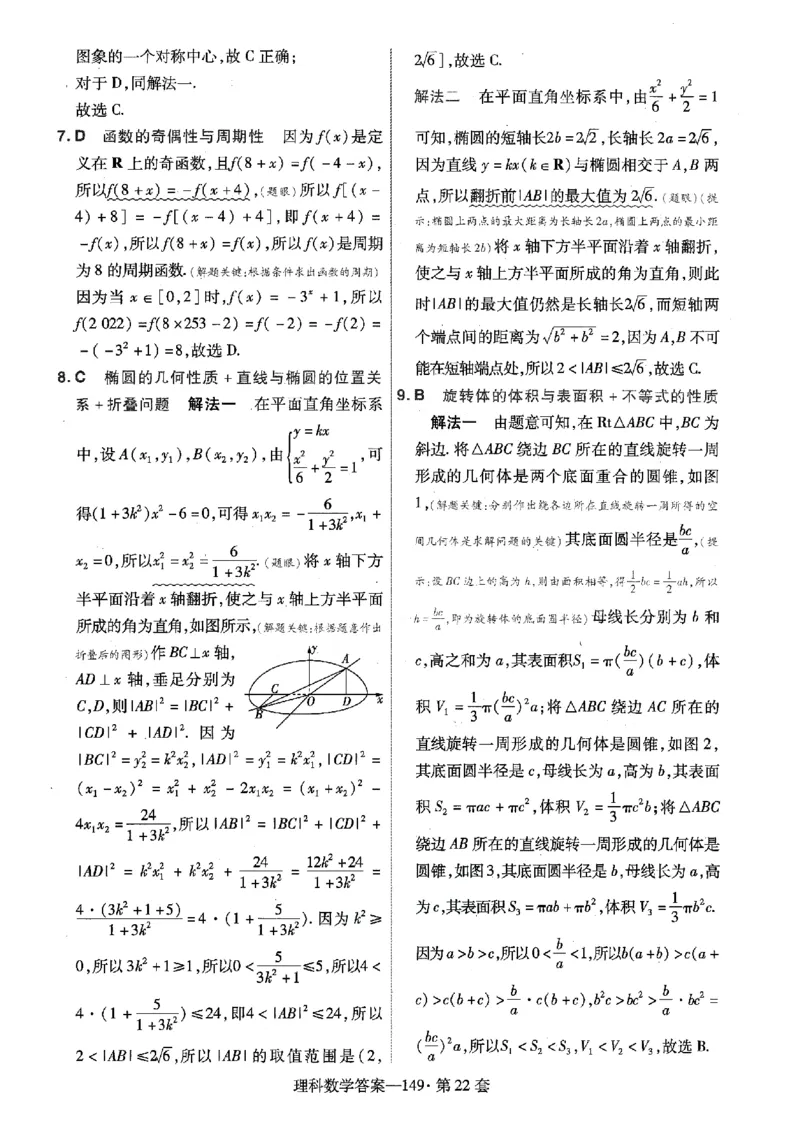 图象的一个对称中心,故 C 正确;
对于 D,同解法一.
故选 C.
7. D 函数的奇偶性与周期性 因为 f(x)是定
义在 R 上的奇函数,且f(8+x)=f(-4-x),
所以f(8+x)=-f(x+4),(题眼)所以 f[(x-
4)+8]=-f[(x-4)+4],即 f(x+4)=
-f(x),所以f(8+x)=f(x),所以f(x)是周期
为 8 的周期函数.(解题关键:根据条件求出函数的周期)
因为当 x∈[0,2]时,f(x)=-3ˣ+1,所以
f(2 022)=f(8×253-2)=f(-2)=-f(2)=
-(-3²+1)=8,故选 D.
8. C 椭圆的几何性质+直线与椭圆的位置关
系+折叠问题 解法一 在平面直角坐标系
中,设 A(x₁,y₁),B(x₂,y₂),由{y=kx, x²/6+y²/2=1,可
得(1+3k²)x²-6=0,可得 x₁x₂=-6/(1+3k²),x₁+
x₂=0,所以x₁²=x₂²=6/(1+3k²).(题眼)将 x 轴下方
半平面沿着 x 轴翻折,使之与 x 轴上方半平面
所成的角为直角,如图所示,(解题关键:根据题意作出
折叠后的图形)作 BC⊥x 轴,
AD⊥x 轴,垂足分别为
C,D,则|AB|²=|BC|²+
|CD|²+|AD|². 因为
y
A
C
O
D
x
B
|BC|²=y₂²=k²x₂²,|AD|²=y₁²=k²x₁²,|CD|²=
(x₁-x₂)²=x₁²+x₂²-2x₁x₂=(x₁+x₂)²-
4x₁x₂=24/(1+3k²),所以|AB|²=|BC|²+|CD|²+
|AD|²=k²x₁²+k²x₂²+24/(1+3k²)=(12k²+24)/(1+3k²)=
4·(3k²+1+5)/(1+3k²)=4·(1+5/(1+3k²)). 因为 k²≥
0,所以 3k²+1≥1,所以0<5/(3k²+1)≤5,所以4<
4·(1+5/(1+3k²))≤24,即4<|AB|²≤24,所以
2<|AB|≤2√6,所以|AB|的取值范围是(2,
2√6],故选 C.
解法二 在平面直角坐标系中,由x²/6+y²/2=1
可知,椭圆的短轴长2b=2√2,长轴长 2a=2√6,
因为直线 y=kx(k∈R)与椭圆相交于 A,B 两
点,所以翻折前|AB|的最大值为 2√6.(题眼)(提
示:椭圆上两点的最大距离为长轴长 2a,椭圆上两点的最小距
离为短轴长 2b)将 x 轴下方半平面沿着 x 轴翻折,
使之与 x 轴上方半平面所成的角为直角,则此
时|AB|的最大值仍然是长轴长2√6,而短轴两
个端点间的距离为√(b²+b²)=2,因为 A,B 不可
能在短轴端点处,所以2<|AB|≤2√6,故选 C.
9. B 旋转体的体积与表面积+不等式的性质
解法一 由题意可知,在 Rt△ABC 中,BC 为
斜边. 将△ABC 绕边 BC 所在的直线旋转一周
形成的几何体是两个底面重合的圆锥,如图
1,(解题关键:分别作出绕各边所在直线旋转一周所得的空
间几何体是求解问题的关键)其底面圆半径是bc/a,(提
示:设 BC 边上的高为 h,则由面积相等,得1/2bc=1/2ah,所以
h=bc/a,即为旋转体的底面圆半径)母线长分别为 b 和
c,高之和为 a,其表面积S₁=π(bc/a)(b+c),体
积 V₁=1/3π(bc/a)²a;将△ABC 绕边 AC 所在的
直线旋转一周形成的几何体是圆锥,如图 2,
其底面圆半径是 c,母线长为 a,高为 b,其表面
积 S₂=πac+πc²,体积 V₂=1/3πc²b;将△ABC
绕边 AB 所在的直线旋转一周形成的几何体是
圆锥,如图3,其底面圆半径是 b,母线长为 a,高
为 c,其表面积S₃=πab+πb²,体积 V₃=1/3πb²c.
因为a>b>c,所以0<b/a<1,所以b(a+b)>c(a+
c)>c(b+c)>b/a·c(b+c),b²c>bc²>b/a·bc²=
(bc/a)²a,所以S₁<S₂<S₃,V₁<V₂<V₃,故选 B.
理科数学答案—149·第 22 套